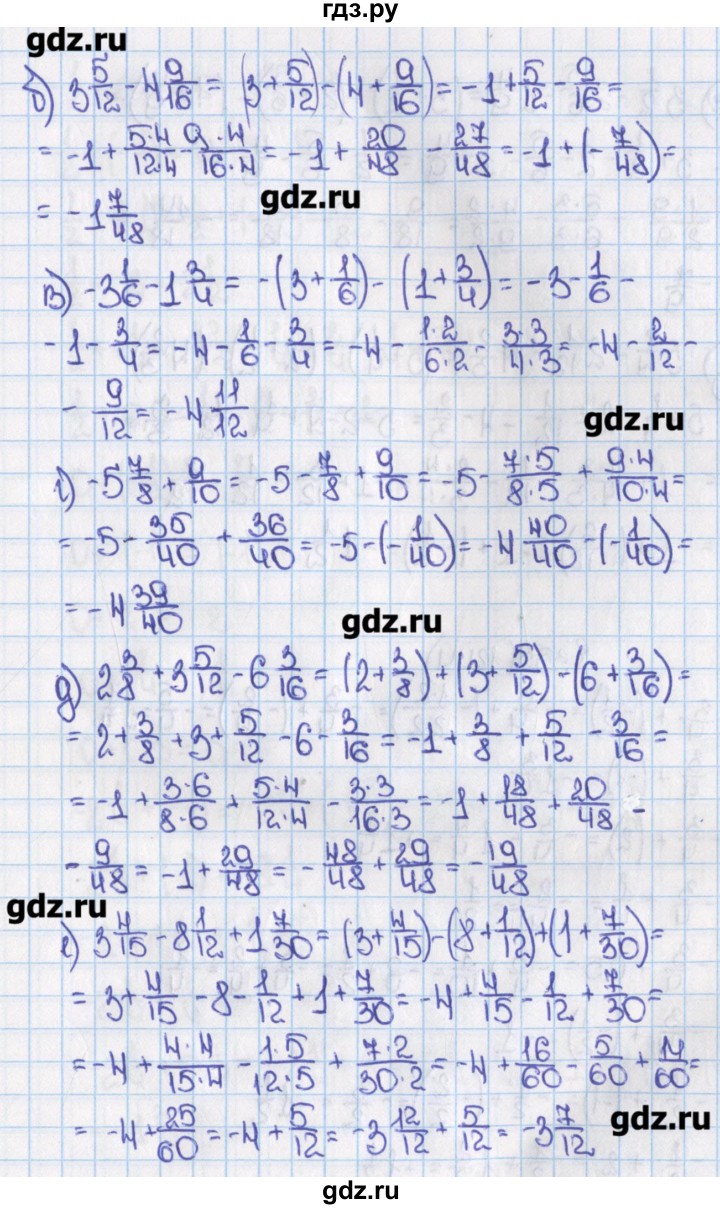 гдз.ру
gdz.ru
б) 3 5/12 - 4 9/16 = (3 + 5/12) - (4 + 9/16) = -1 + 5/12 - 9/16 =
= -1 + 5·4/12·4 - 9·4/16·4 = -1 + 20/48 - 27/48 = -1 + (-7/48) =
gdz.ru
= -1 7/48
в) -3 1/6 - 1 3/4 = -(3 + 1/6) - (1 + 3/4) = -3 - 1/6 -
- 1 - 3/4 = -4 - 1/6 - 3/4 = -4 - 1·2/6·2 - 3·3/4·3 = -4 - 2/12 -
- 9/12 = -4 11/12
gdz.ru
г) -5 7/8 + 9/10 = -5 - 7/8 + 9/10 = -5 - 7·5/8·5 + 9·4/10·4 =
= -5 - 35/40 + 36/40 = -5 - (-1/40) = -4 40/40 - (-1/40) =
= -4 39/40
gdz.ru
д) 2 3/8 + 3 5/12 - 6 3/16 = (2 + 3/8) + (3 + 5/12) - (6 + 3/16) =
= 2 + 3/8 + 3 + 5/12 - 6 - 3/16 = -1 + 3/8 + 5/12 - 3/16 =
= -1 + 3·6/8·6 + 5·4/12·4 - 3·3/16·3 = -1 + 18/48 + 20/48 -
- 9/48 = -1 + 29/48 = -48/48 + 29/48 = -19/48
gdz.ru
е) 3 4/15 - 8 1/12 + 1 7/30 = (3 + 4/15) - (8 + 1/12) + (1 + 7/30) =
= 3 + 4/15 - 8 - 1/12 + 1 + 7/30 = -4 + 4/15 - 1/12 + 7/30 =
= -4 + 4·4/15·4 - 1·5/12·5 + 7·2/30·2 = -4 + 16/60 - 5/60 + 14/60 =
= -4 + 25/60 = -4 + 5/12 = -3 12/12 + 5/12 = -3 7/12
gdz.ru
gdz.ru